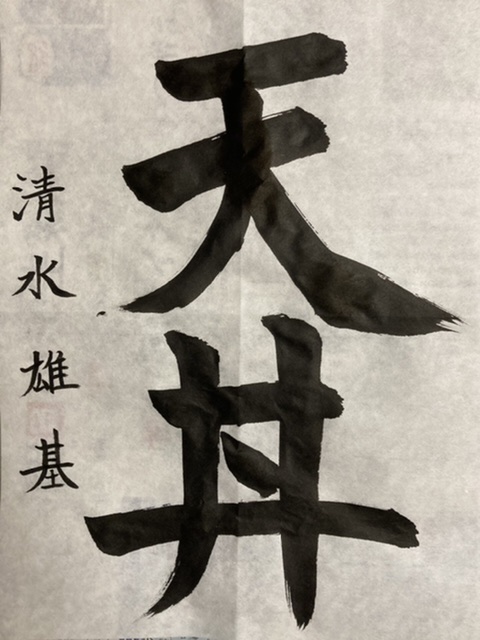 天丼
清水雄基